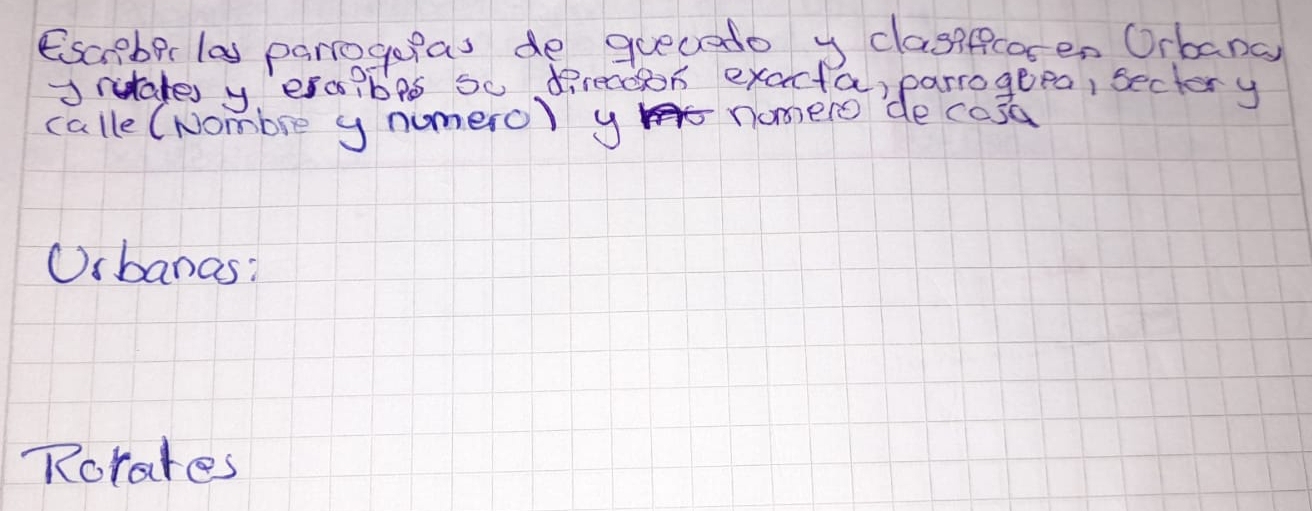 Escribir las parroquias de quevedo y clasificar en Urbanas
y rurales y escribes su dirección exacta, parroquia, sector y
calle (Nombre y numero) y numero de casa
Urbanas:
Rurales